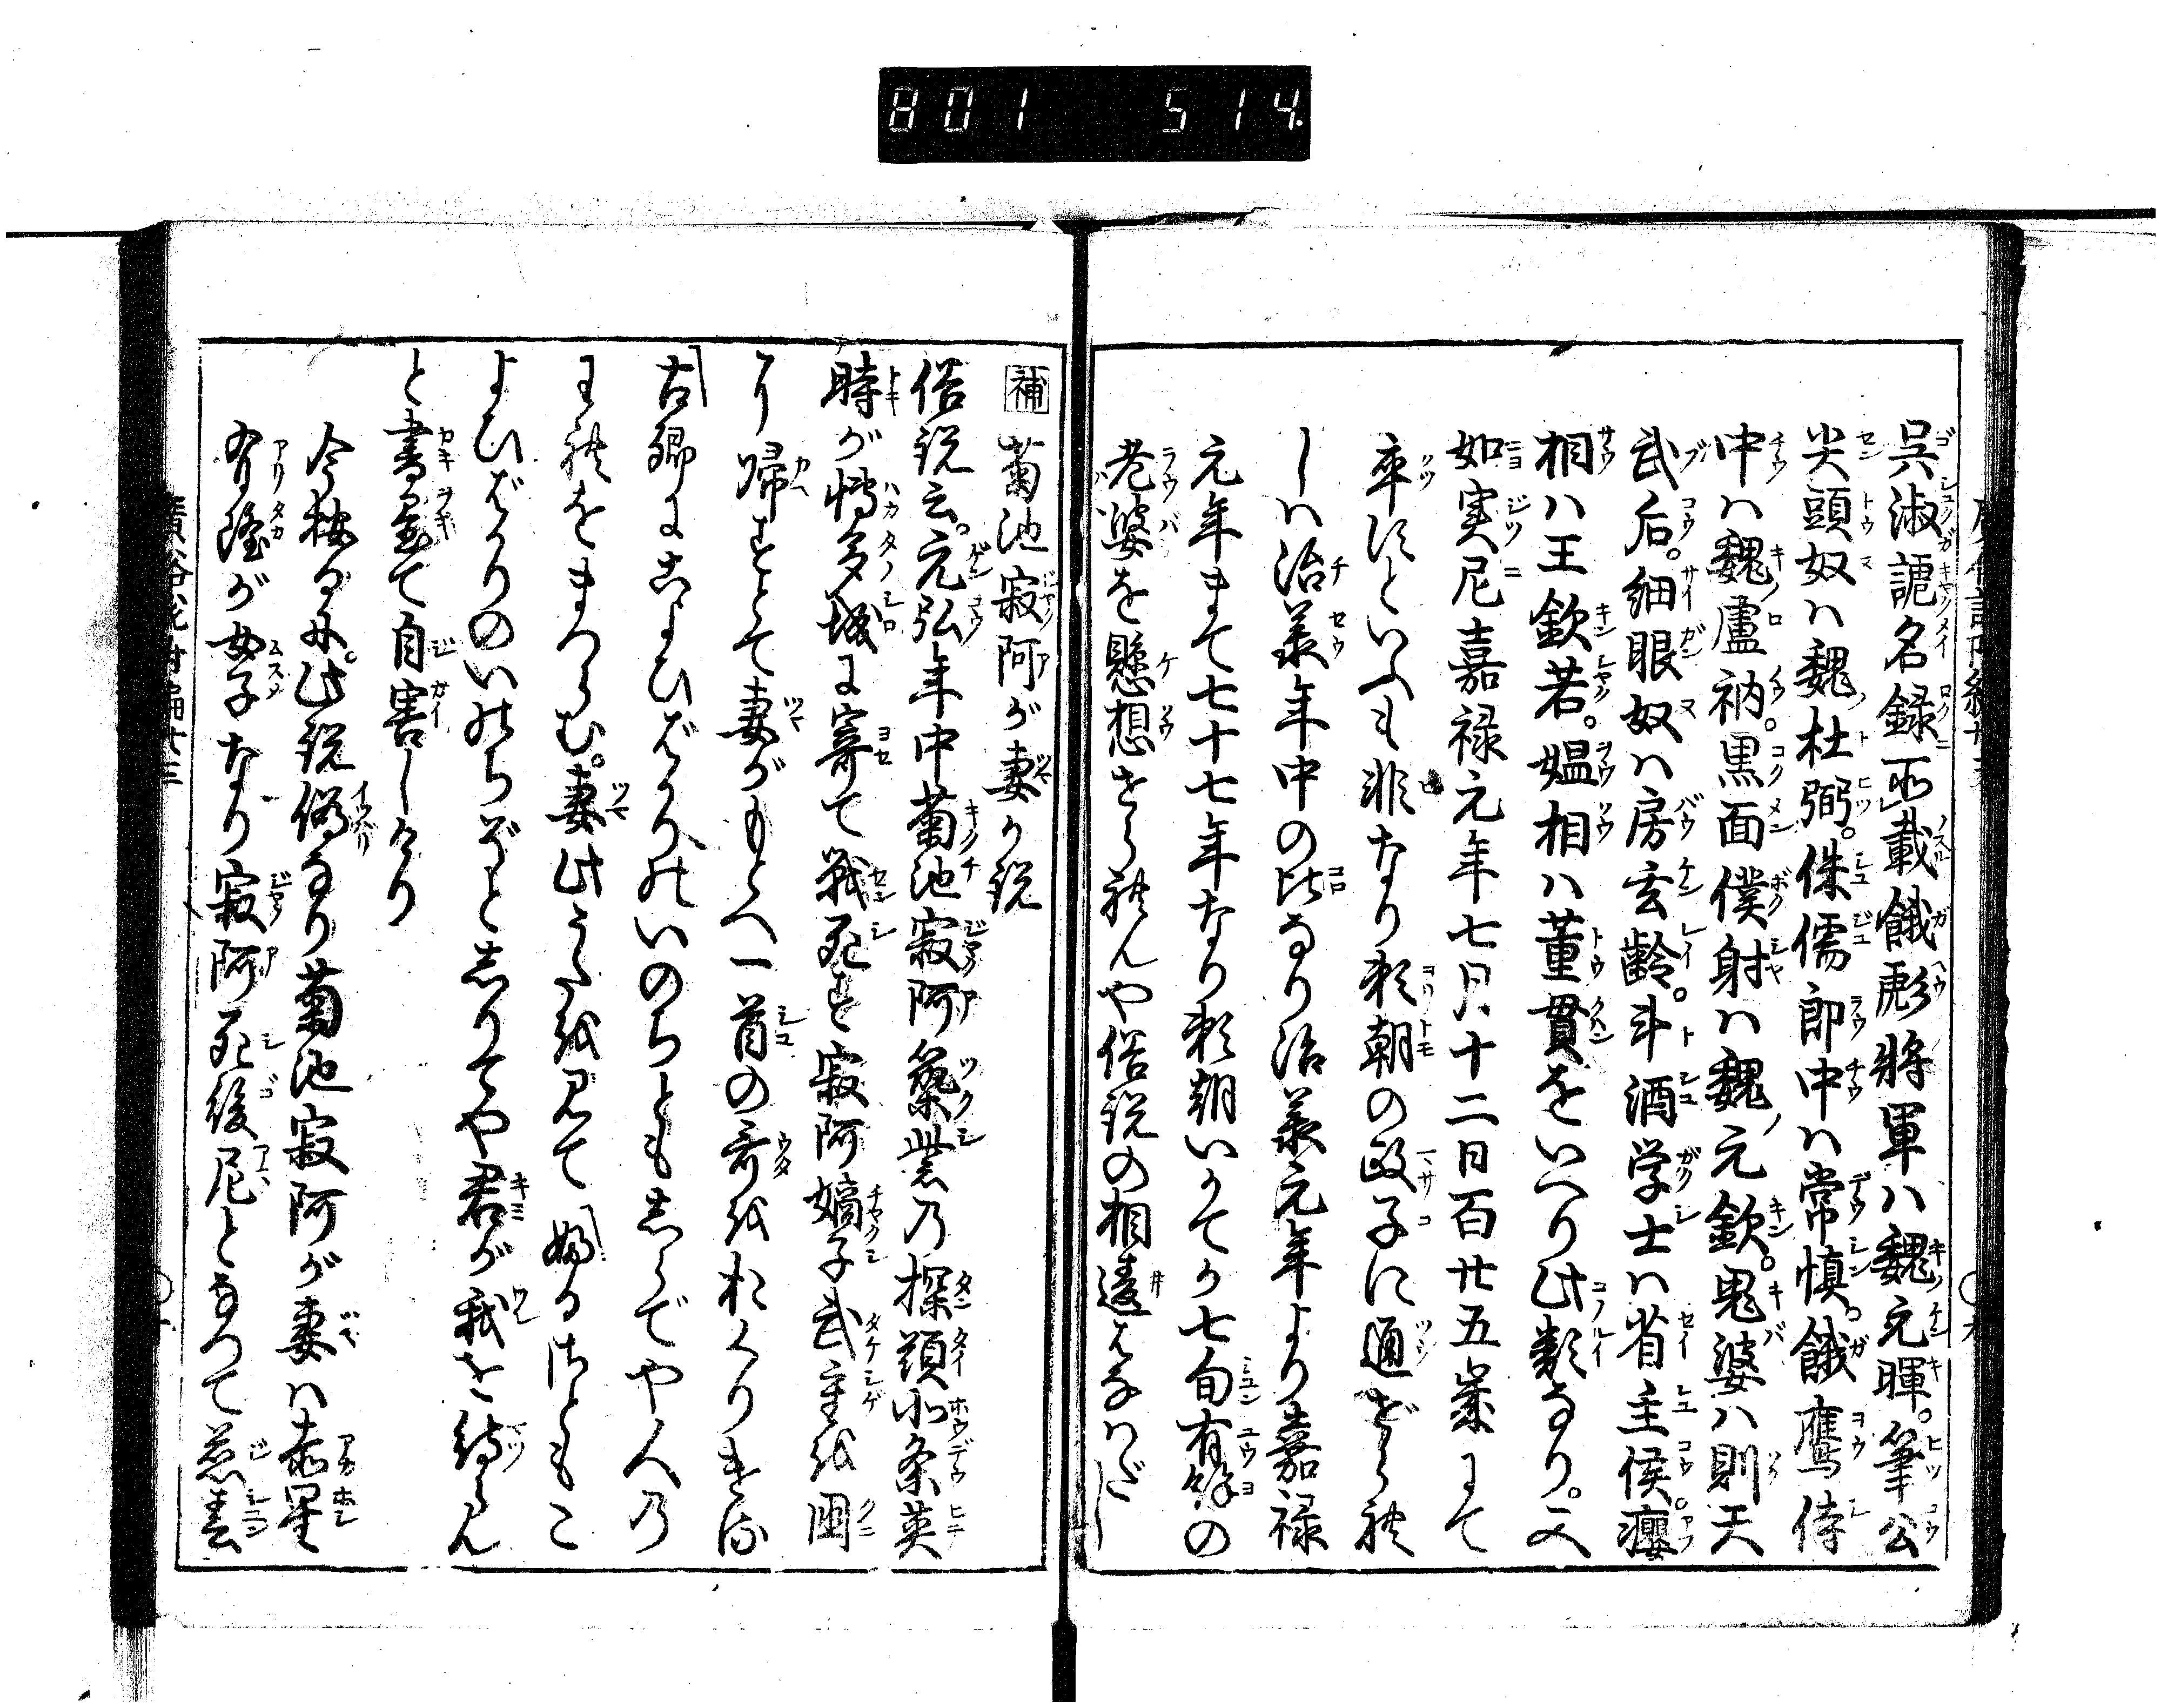 801 514
呉淑諕名録ニ所載餓彪將軍ハ魏元暉。筆公
尖頭奴ハ魏杜弼。侏儒郎中ハ常慎。餓鷹侍
中ハ魏盧衲。黒面僕射ハ魏元欽。鬼婆ハ則天
武后。細眼奴ハ房玄齢。斗酒学士ハ省主侯。癭
相ハ王欽若。媼相ハ董貫をいへり此類なり。又
如実尼嘉禄元年七月十二日百廿五歳にて
卒すといふも非なり頼朝の政子に通ぜられ
しハ治承年中の比なり治承元年より嘉禄
元年まて七十七年なり頼朝いかてか七旬有餘の
老婆を懸想せられんや俗説の相違はなはだし
補 菊池寂阿が妻の説
俗説云。元弘年中菊池寂阿築紫乃探題北条英
時が博多城に寄て戦死す寂阿嫡子武重を国
に帰すとて妻がもとへ一首の哥をおくりける
古郷にこよひばかりのいのちともしらでや人乃
われをまつらむ。妻此うたを見て
よひばかりのいのちぞとしりてや君が我を待らん
と書置て自害しけり
今按るに。此説偽なり菊池寂阿が妻ハ赤星
有隆が女子なり寂阿死後尼となつて慈春